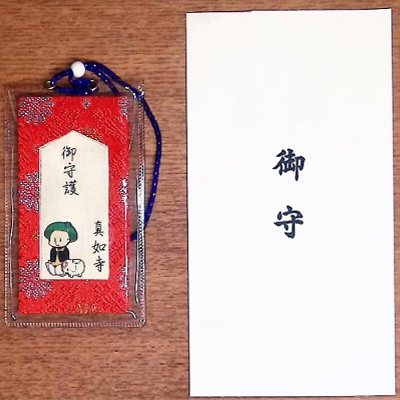 御守護
真如寺
御守